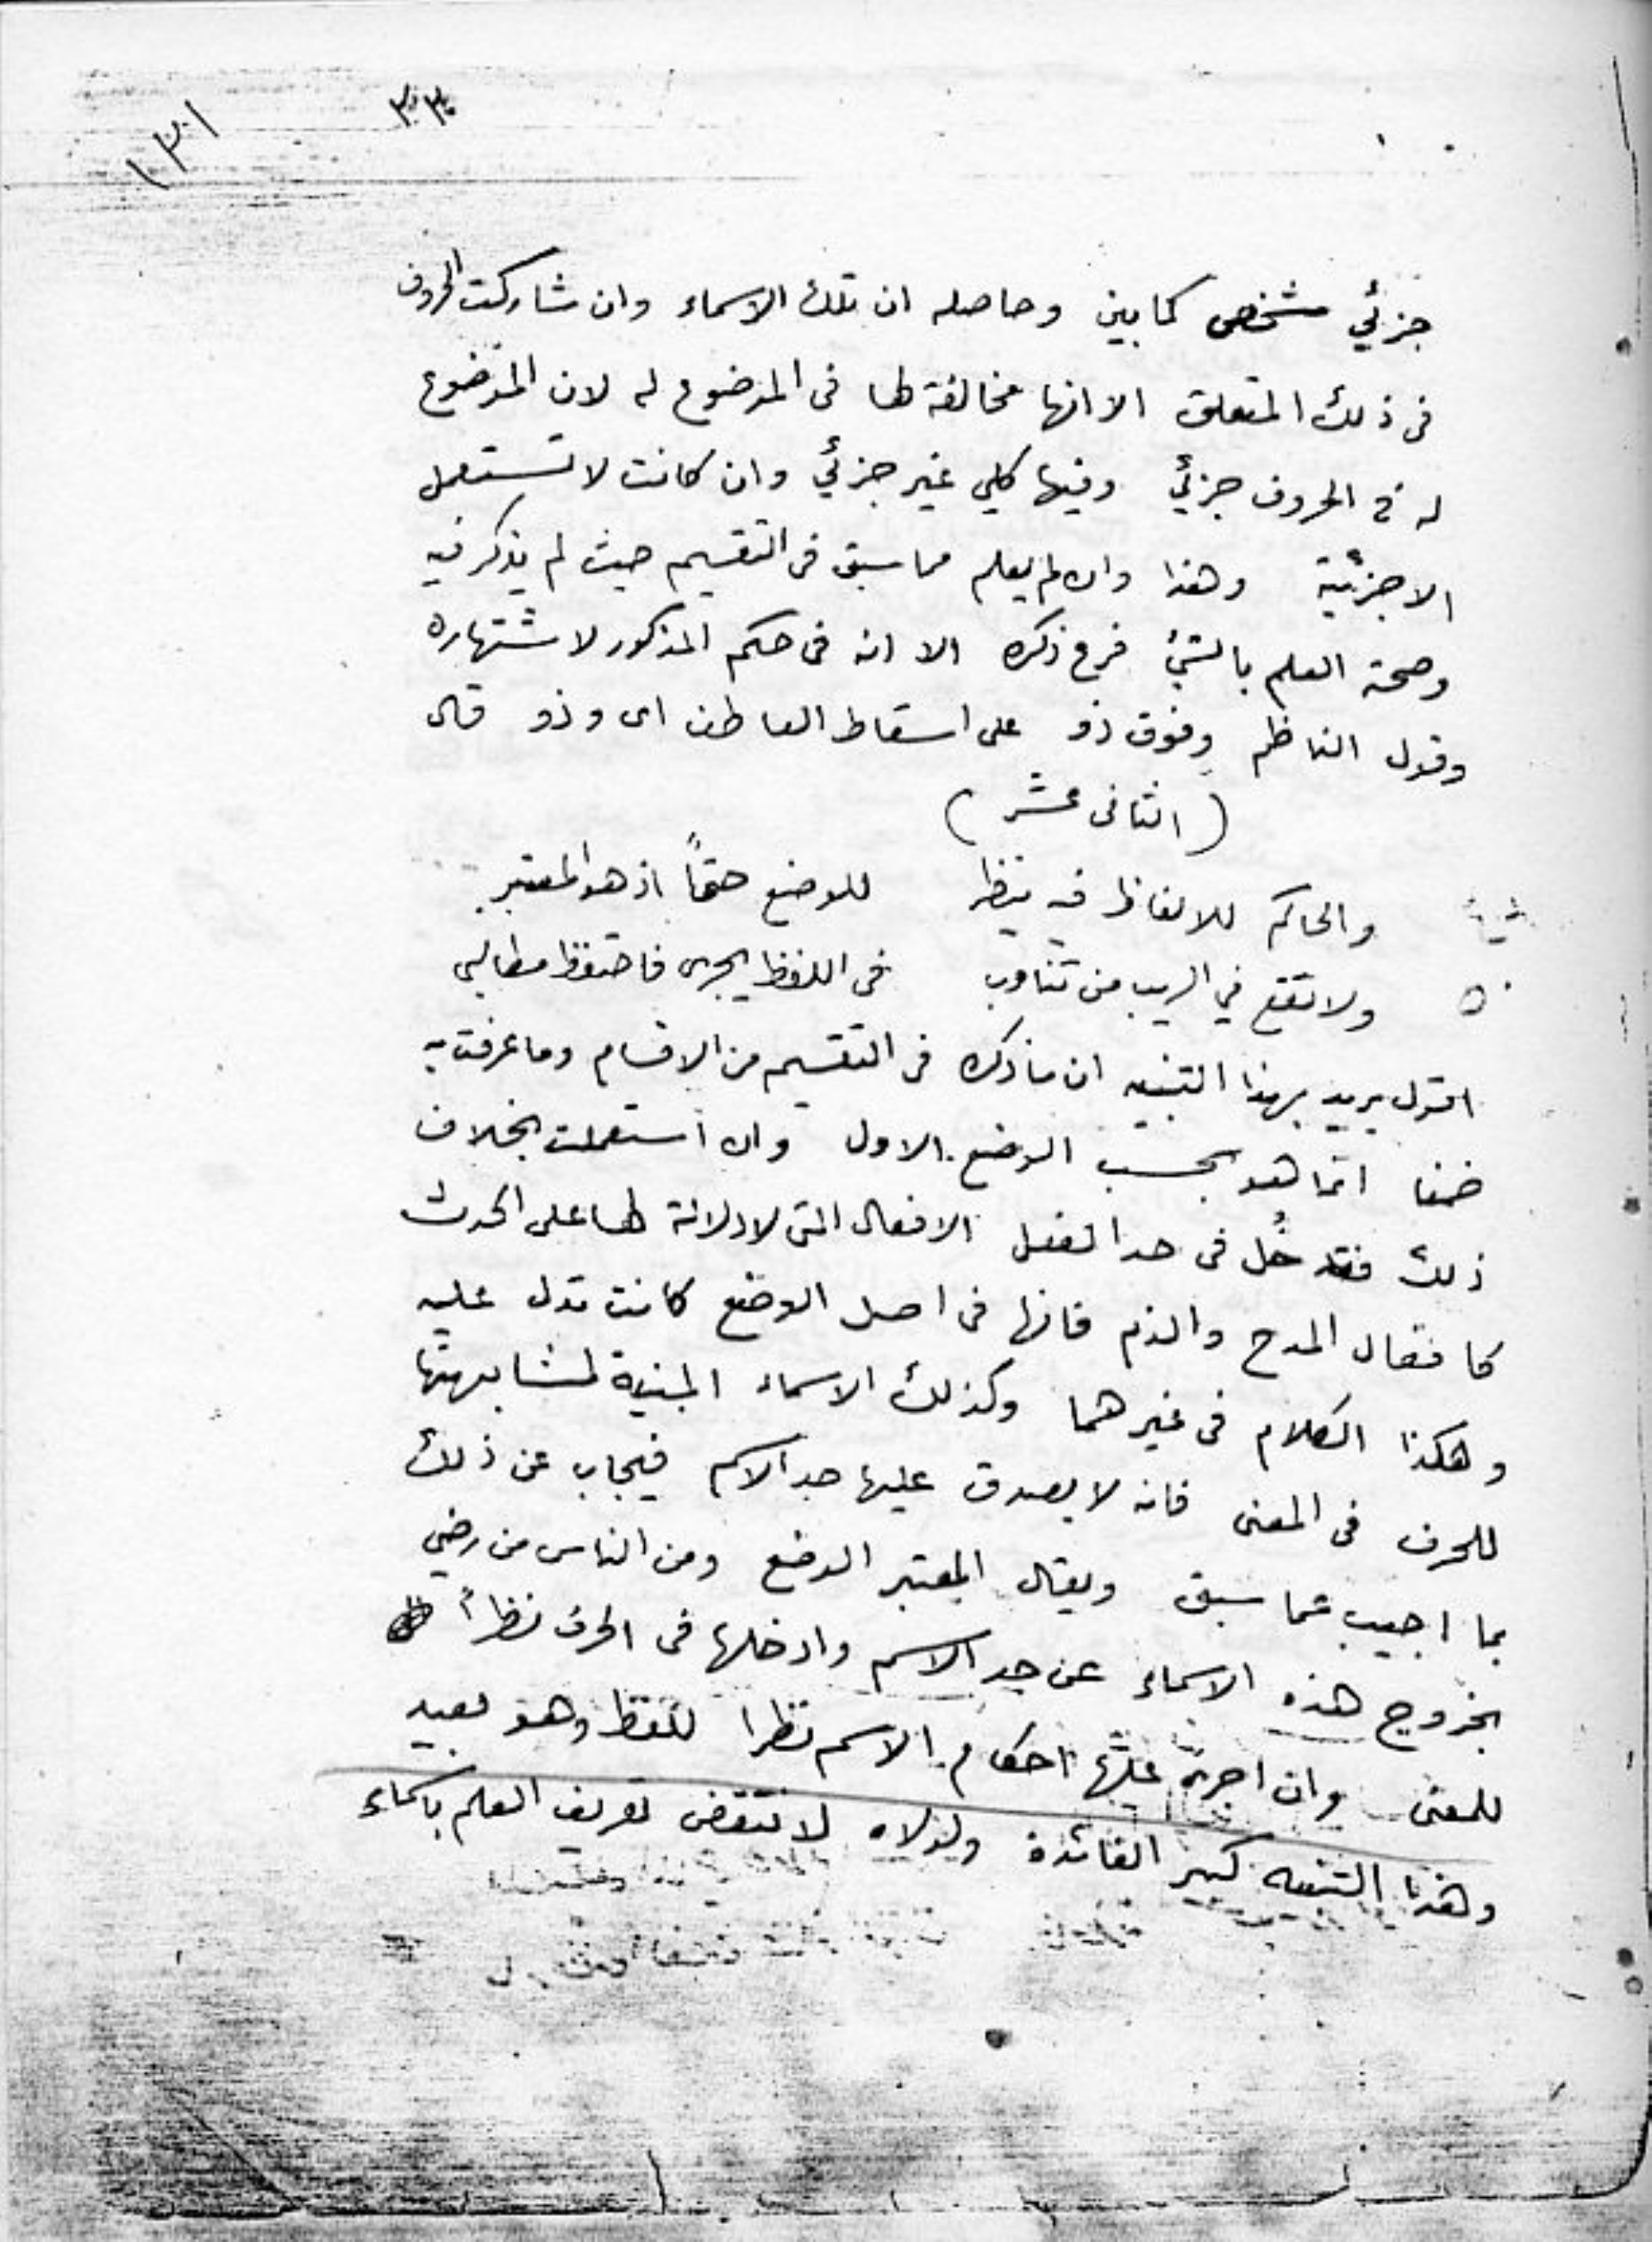 ١٣١
٣٣
جزئي مشخص كما بين وحاصله ان تلك الاسماء وان شاركت الحروف
فى ذلك المتعلق الا انها مخالفة لها فى الموضوع له لان الموضوع
له فى الحروف جزئي وفيها كلي غير جزئي وان كانت لا تستعمل
الا جزئية وهذا وان لم يعلم مما سبق فى التقسيم حيث لم يذكر فيه
وصحة العلم بالشئ فرع ذكره الا انه فى حكم المذكور لاشتهاره
وقول الناظم وفوق ذو على اسقاط العاطف اى وذو قال
( الثانى عشر )
والحاكم للالفاظ فيه ينظر للوضع حقاً اذ هو المعتبر
٥٠ ولا تقع في الريب من تناوب فى اللفظ يجرى فاحتفظ مطالبى
اقول يريد بهذا التنبيه ان ما ذكره فى التقسيم من الاقسام وما عرفت به
ضمنا انما هو بحسب الوضع الاول وان استعملت بخلاف
ذلك فقد دخل فى حد الفعل الافعال التى لا دلالة لها على الحدث
كافعال المدح والذم فانها فى اصل الوضع كانت تدل عليه
وهكذا الكلام فى غيرهما وكذلك الاسماء المبنية لمشابهتها
للحرف فى المعنى فانه لا يصدق عليها حد الاسم فيجاب عن ذلك
بما اجيب عما سبق ويقال المعتبر الوضع ومن الناس من رضي
بخروج هذه الاسماء عن حد الاسم وادخلها فى الحرف نظراً
للمعنى وان اجرى عليها احكام الاسم نظرا للفظ وهو بعيد
وهذا التنبيه كبير الفائدة ولولاه لانتقض تعريف العلم باسماء